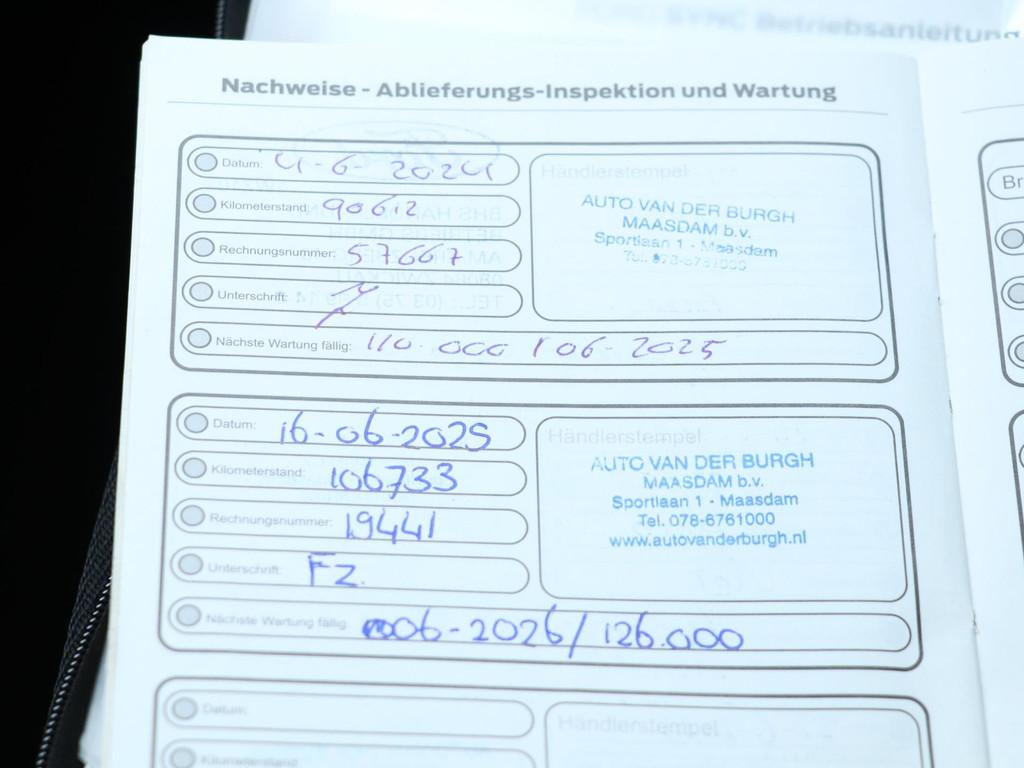 SYNC Betriebsanleitung
Nachweise - Ablieferungs-Inspektion und Wartung
Datum: 4-6-2024
Kilometerstand: 90612
Rechnungsnummer: 57667
Unterschrift:
Nächste Wartung fällig: 110.000 / 06-2025
Händlerstempel
AUTO VAN DER BURGH
MAASDAM b.v.
Sportlaan 1 - Maasdam
Tel. 078-6761000
Datum: 16-06-2025
Kilometerstand: 106733
Rechnungsnummer: 19441
Unterschrift: Fz.
Nächste Wartung fällig: 06-2026/126.000
Händlerstempel
AUTO VAN DER BURGH
MAASDAM b.v.
Sportlaan 1 - Maasdam
Tel. 078-6761000
www.autovanderburgh.nl
Datum:
Kilometerstand
Händlerstempel
Br